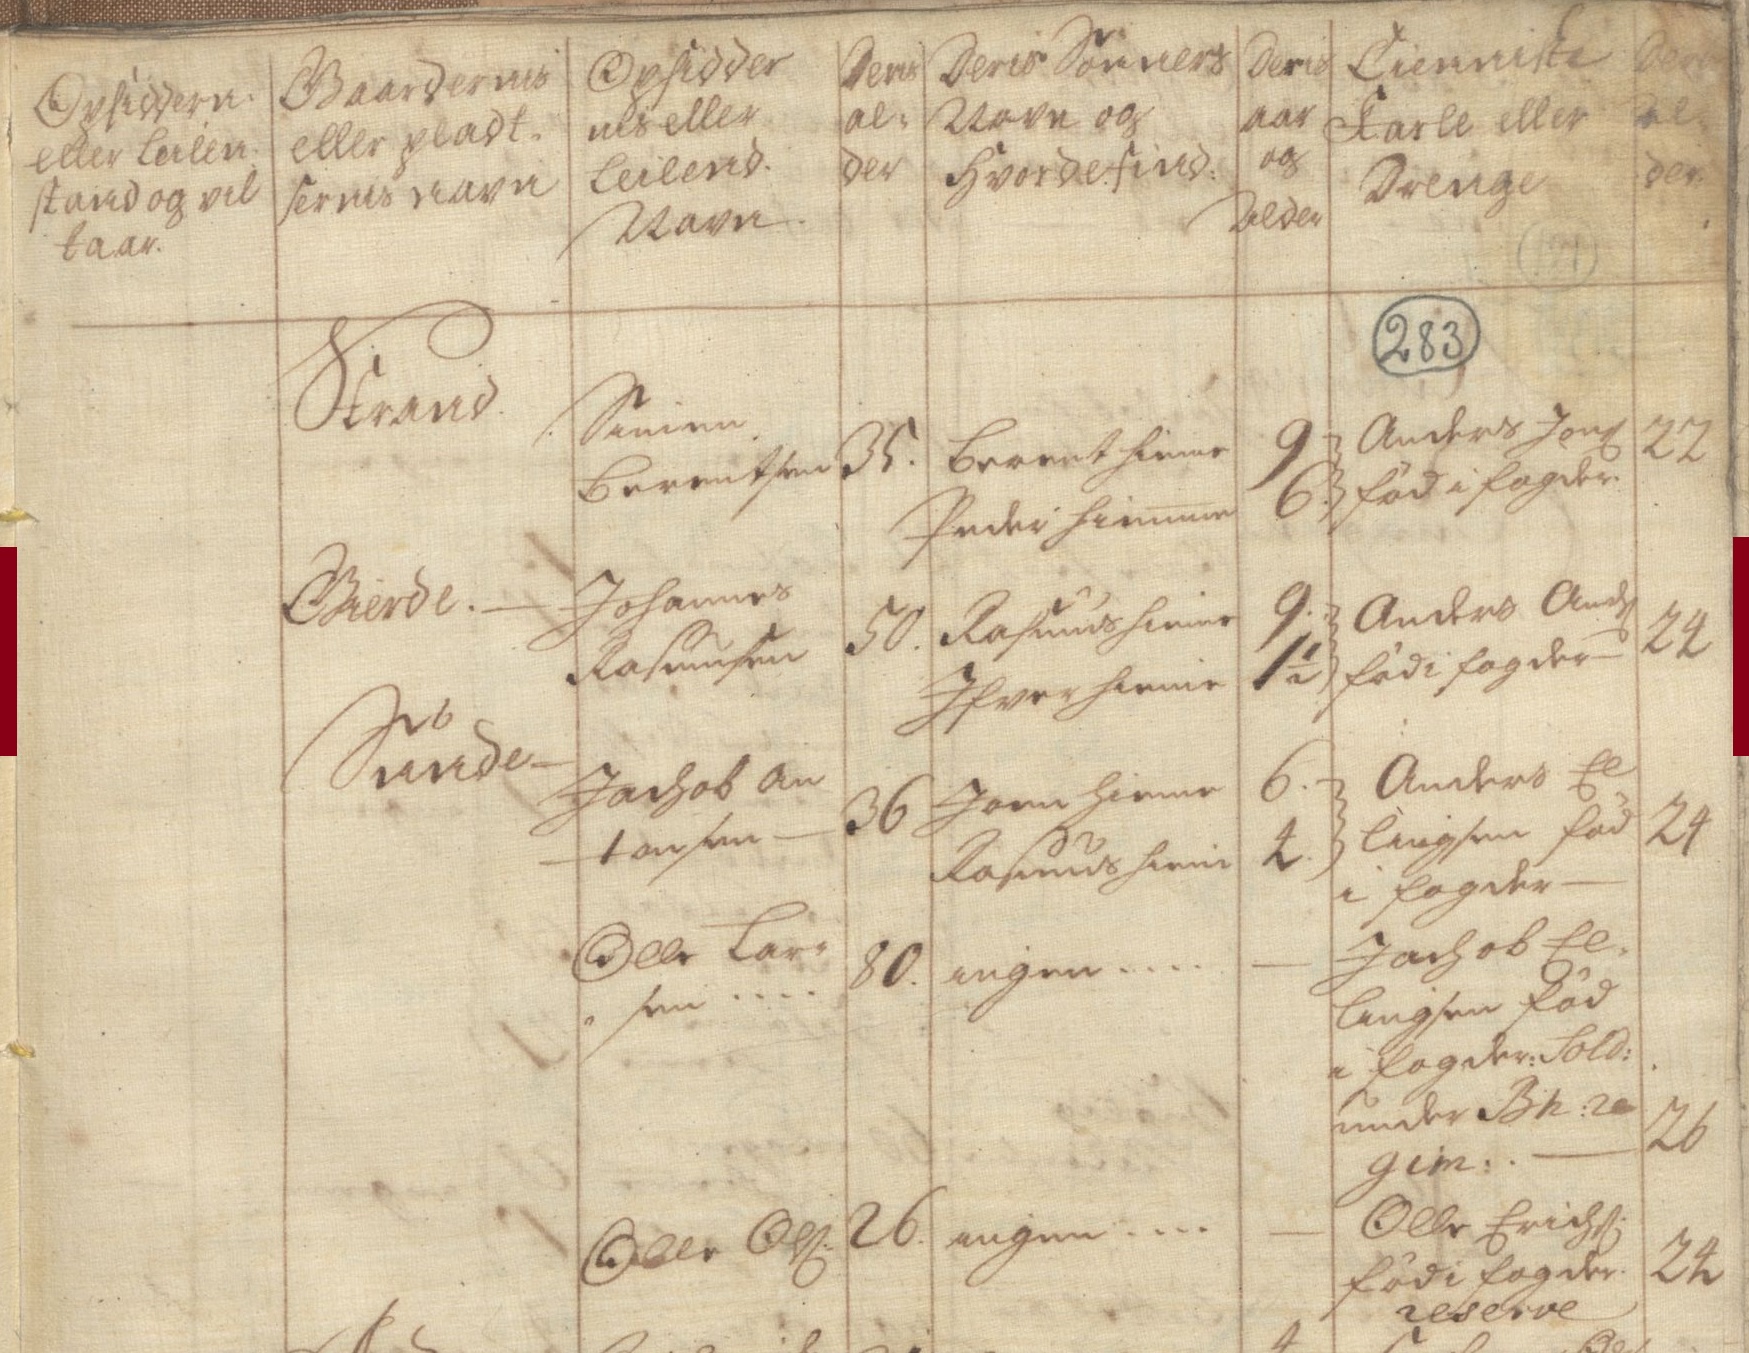 Opsiddern.
eller Leilen.
stand og vil
kaar.
Gaardernis
eller pladt.
sernis navn
Opsidder
nis eller
Leilend.
Navn.
Deris
al:
der
Deris Sønners
Navn og
hvor de sind:
Deris
aar
og
alder
Tienniste
Karle eller
Drenge
Deris
al:
der.
283
Strand.
Simen
Berentsen
35.
Berent hieme
Peder hiemme
9
6.
Anders Jons
fød i fogder.
22
Gierde.
Johannes
Rasmusen
50.
Rasmus hieme
Ifver hieme
9.
1½
Anders Anders
fød i fogder
24
Sunde
Jachob An
tonsen
36
Joen hieme
Rasmus hieme
6.
4.
Anders El
lingsen fød
i fogder
24
Olle Lar
sen ....
80.
ingen ....
Jachob El.
lingsen fød
i fogder: Sold:
under Bh: re
gim:.
26
Olle Ols:
26.
ingen ....
Olle Erichs:
fød i fogder.
reserve
24